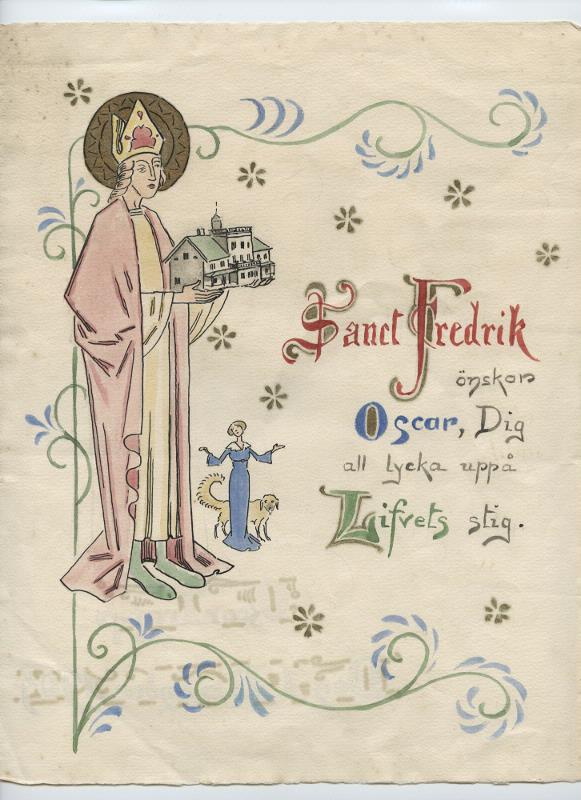 Sanct Fredrik
önskar
Oscar, Dig
all lycka uppå
Lifvets stig.